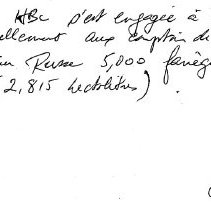 HBC s'est engagée à
ellement aux comptoirs de
Russe 5,000 fanèg
2,815 hectolitres) .